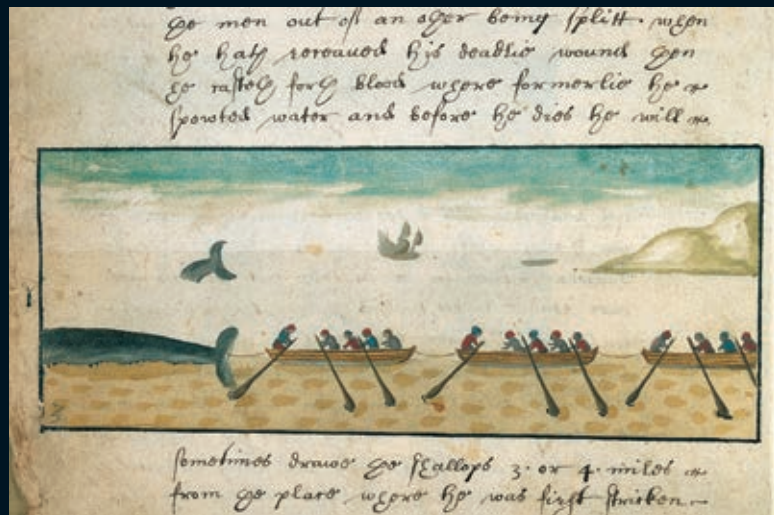 ye men out of an other being splitt. when
he hath receaved his deadlie wound then
he casteth forth blood where formerlie he
spowted water and before he dies he will
sometimes drawe ye shallops 3. or 4. miles
from ye place where he was first stricken